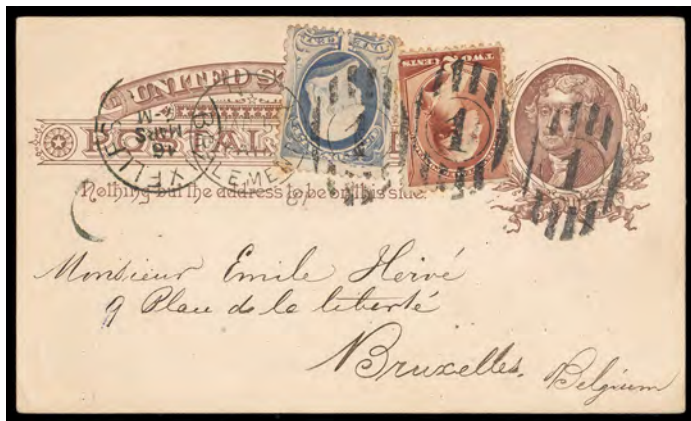 UNITED S
POSTAL
Nothing but the address to be on this side.
TWO 2 CENTS
1
1
1
16
MARS
-M
XELLES
Monsieur Emile Hervé
9 Place de la liberté
Bruxelles.
Belgium